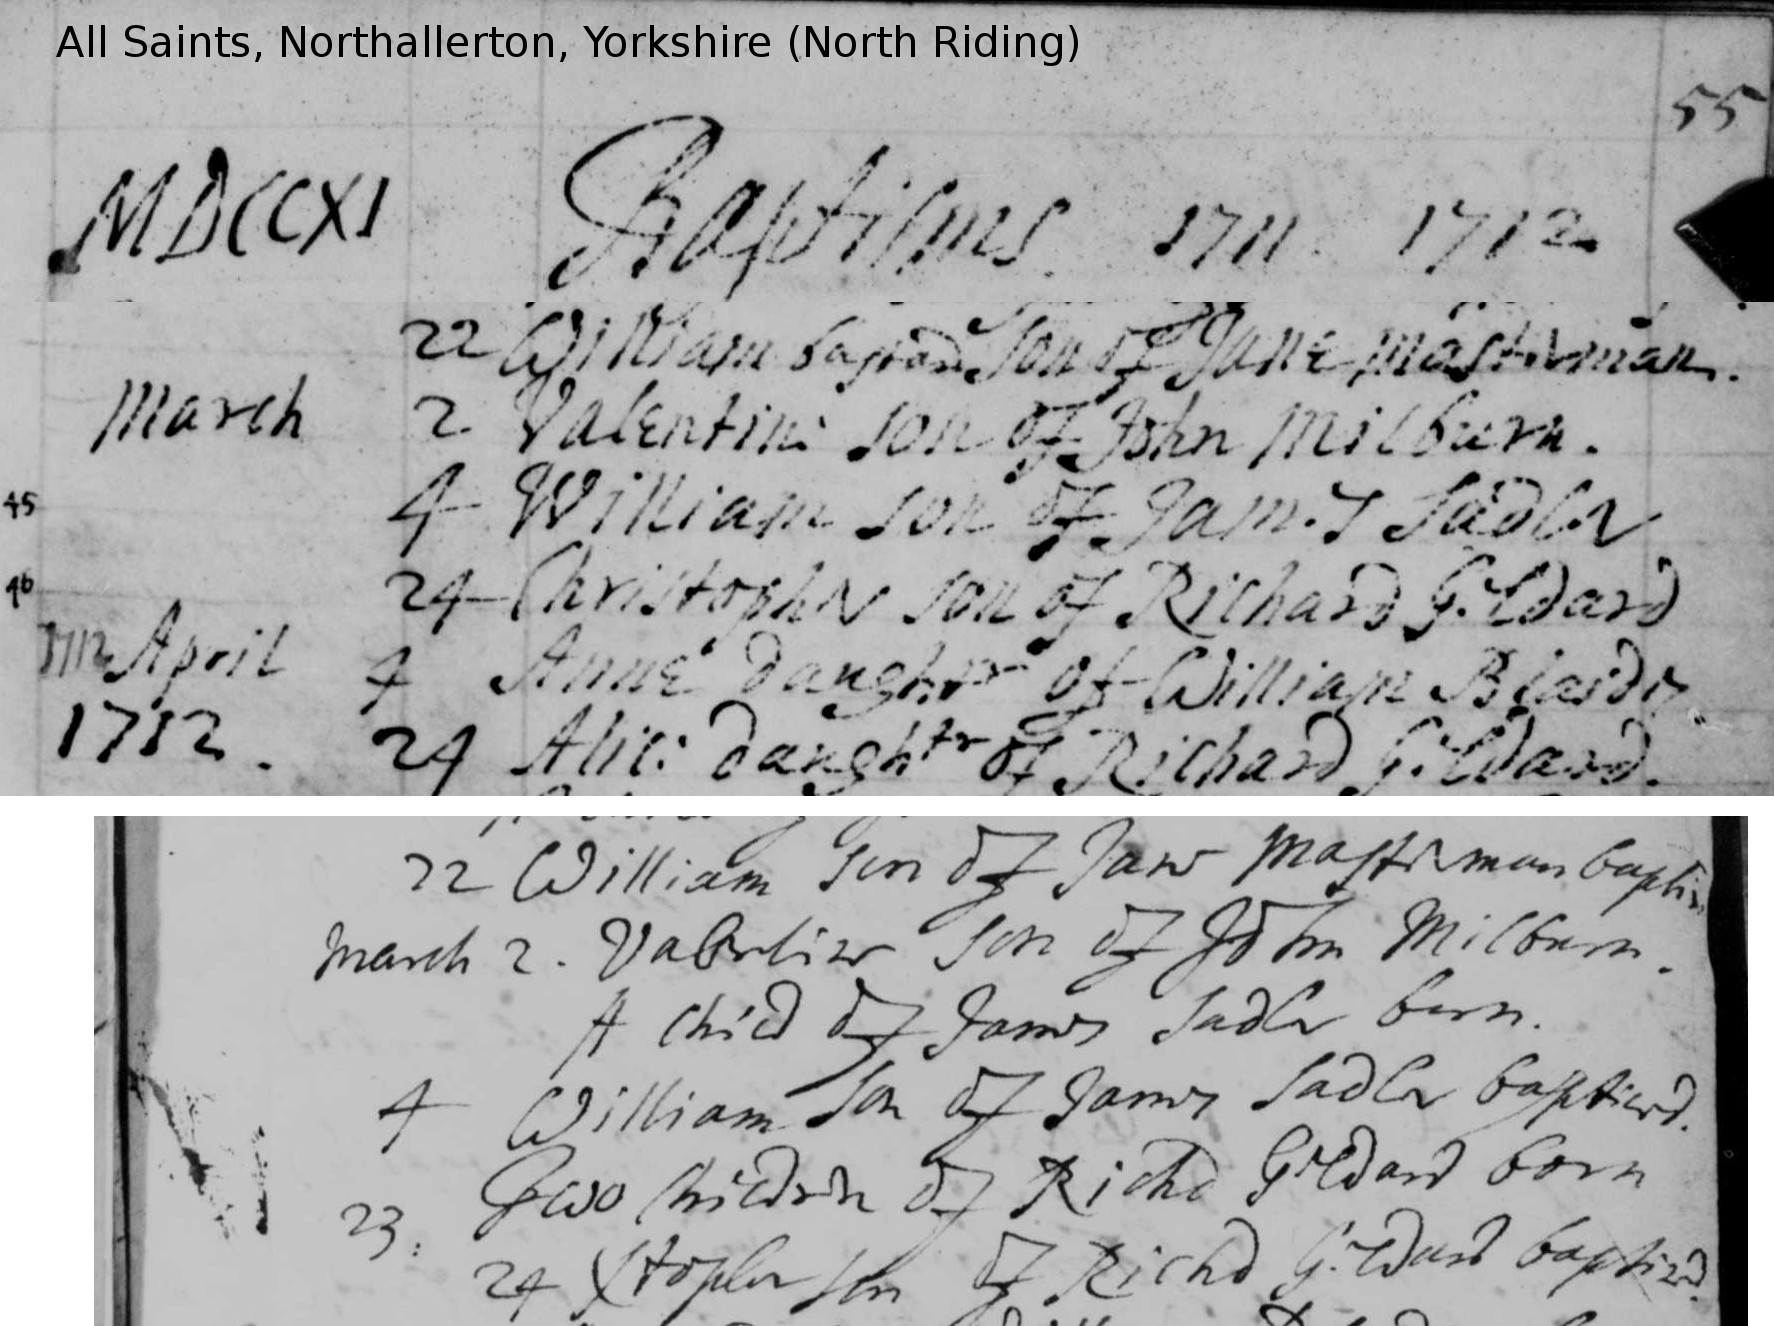 All Saints, Northallerton, Yorkshire (North Riding)
55
MDCCXI Baptisms 1711. 1712
22 William bastard son of Jane Masterman.
March 2 Valentine son of John Milburn.
45 4 William son of James Sadler
46 24 Christopher son of Richard Gildard
1712 April 4 Anne daughtr of William
1712. 24 Alice daughtr of Richard Gildard.
22 William son of Jane Masterman
March 2. Valentine son of John Milburn.
A child of James Sadler born.
4 William son of James Sadler baptized.
23. Two children of Richd Gildard born
24 Xtopher son of Richd Gildard baptized